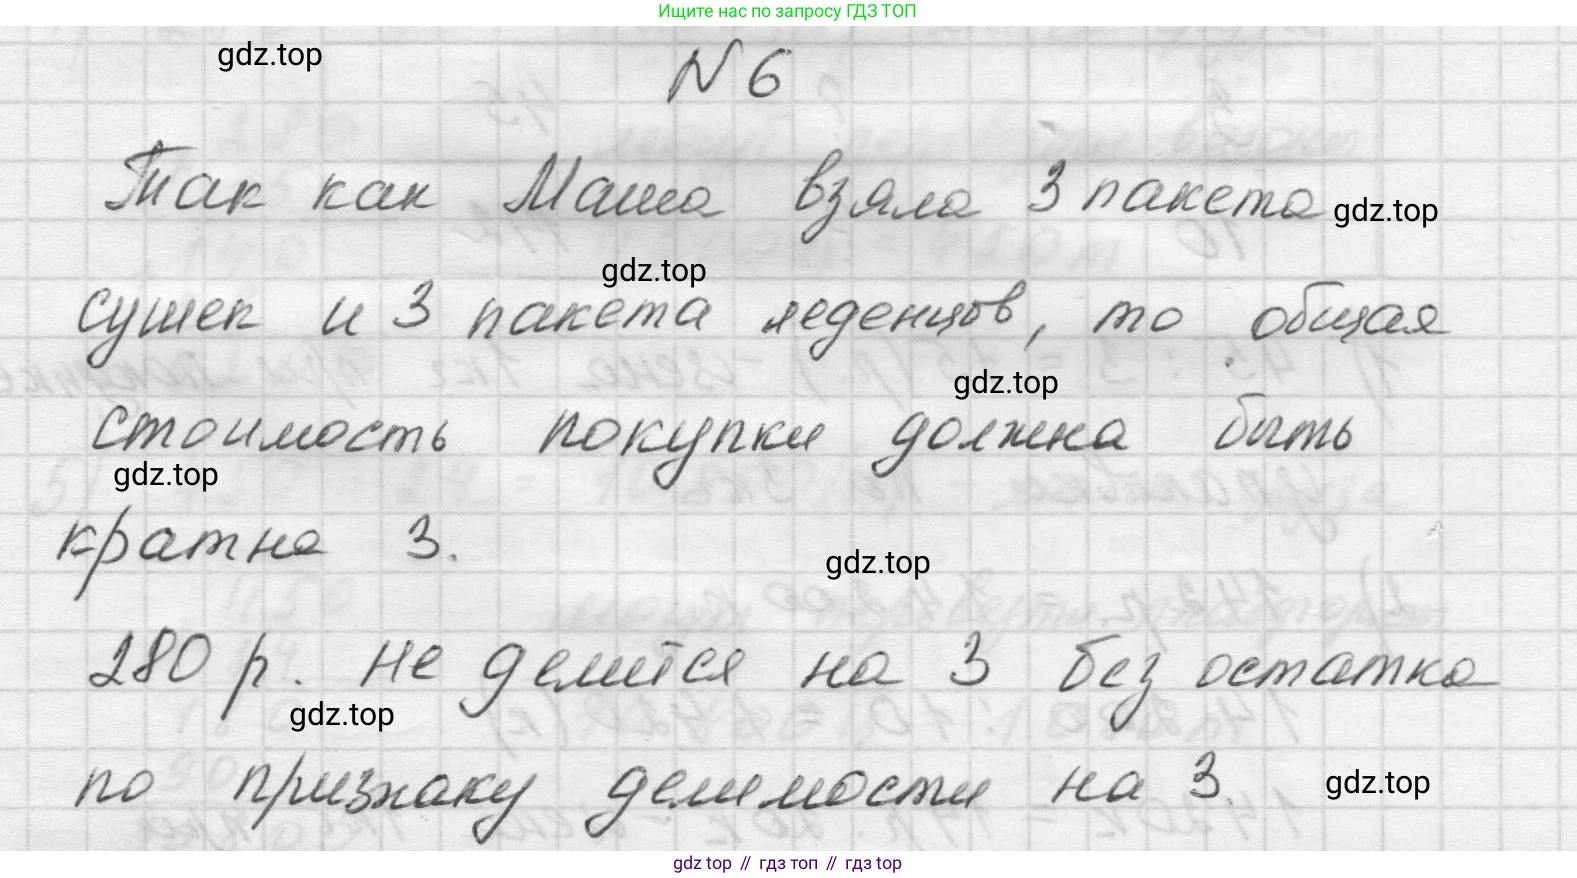 Ищите нас по запросу ГДЗ ТОП
gdz.top
N 6
Так как Маша взяла 3 пакета
gdz.top
gdz.top
сушек и 3 пакета леденцов, то общая
gdz.top
стоимость покупки должна быть
gdz.top
кратна 3.
gdz.top
280 р. не делится на 3 без остатка
gdz.top
по признаку делимости на 3.
gdz.top
gdz top // гдз топ // гдз top